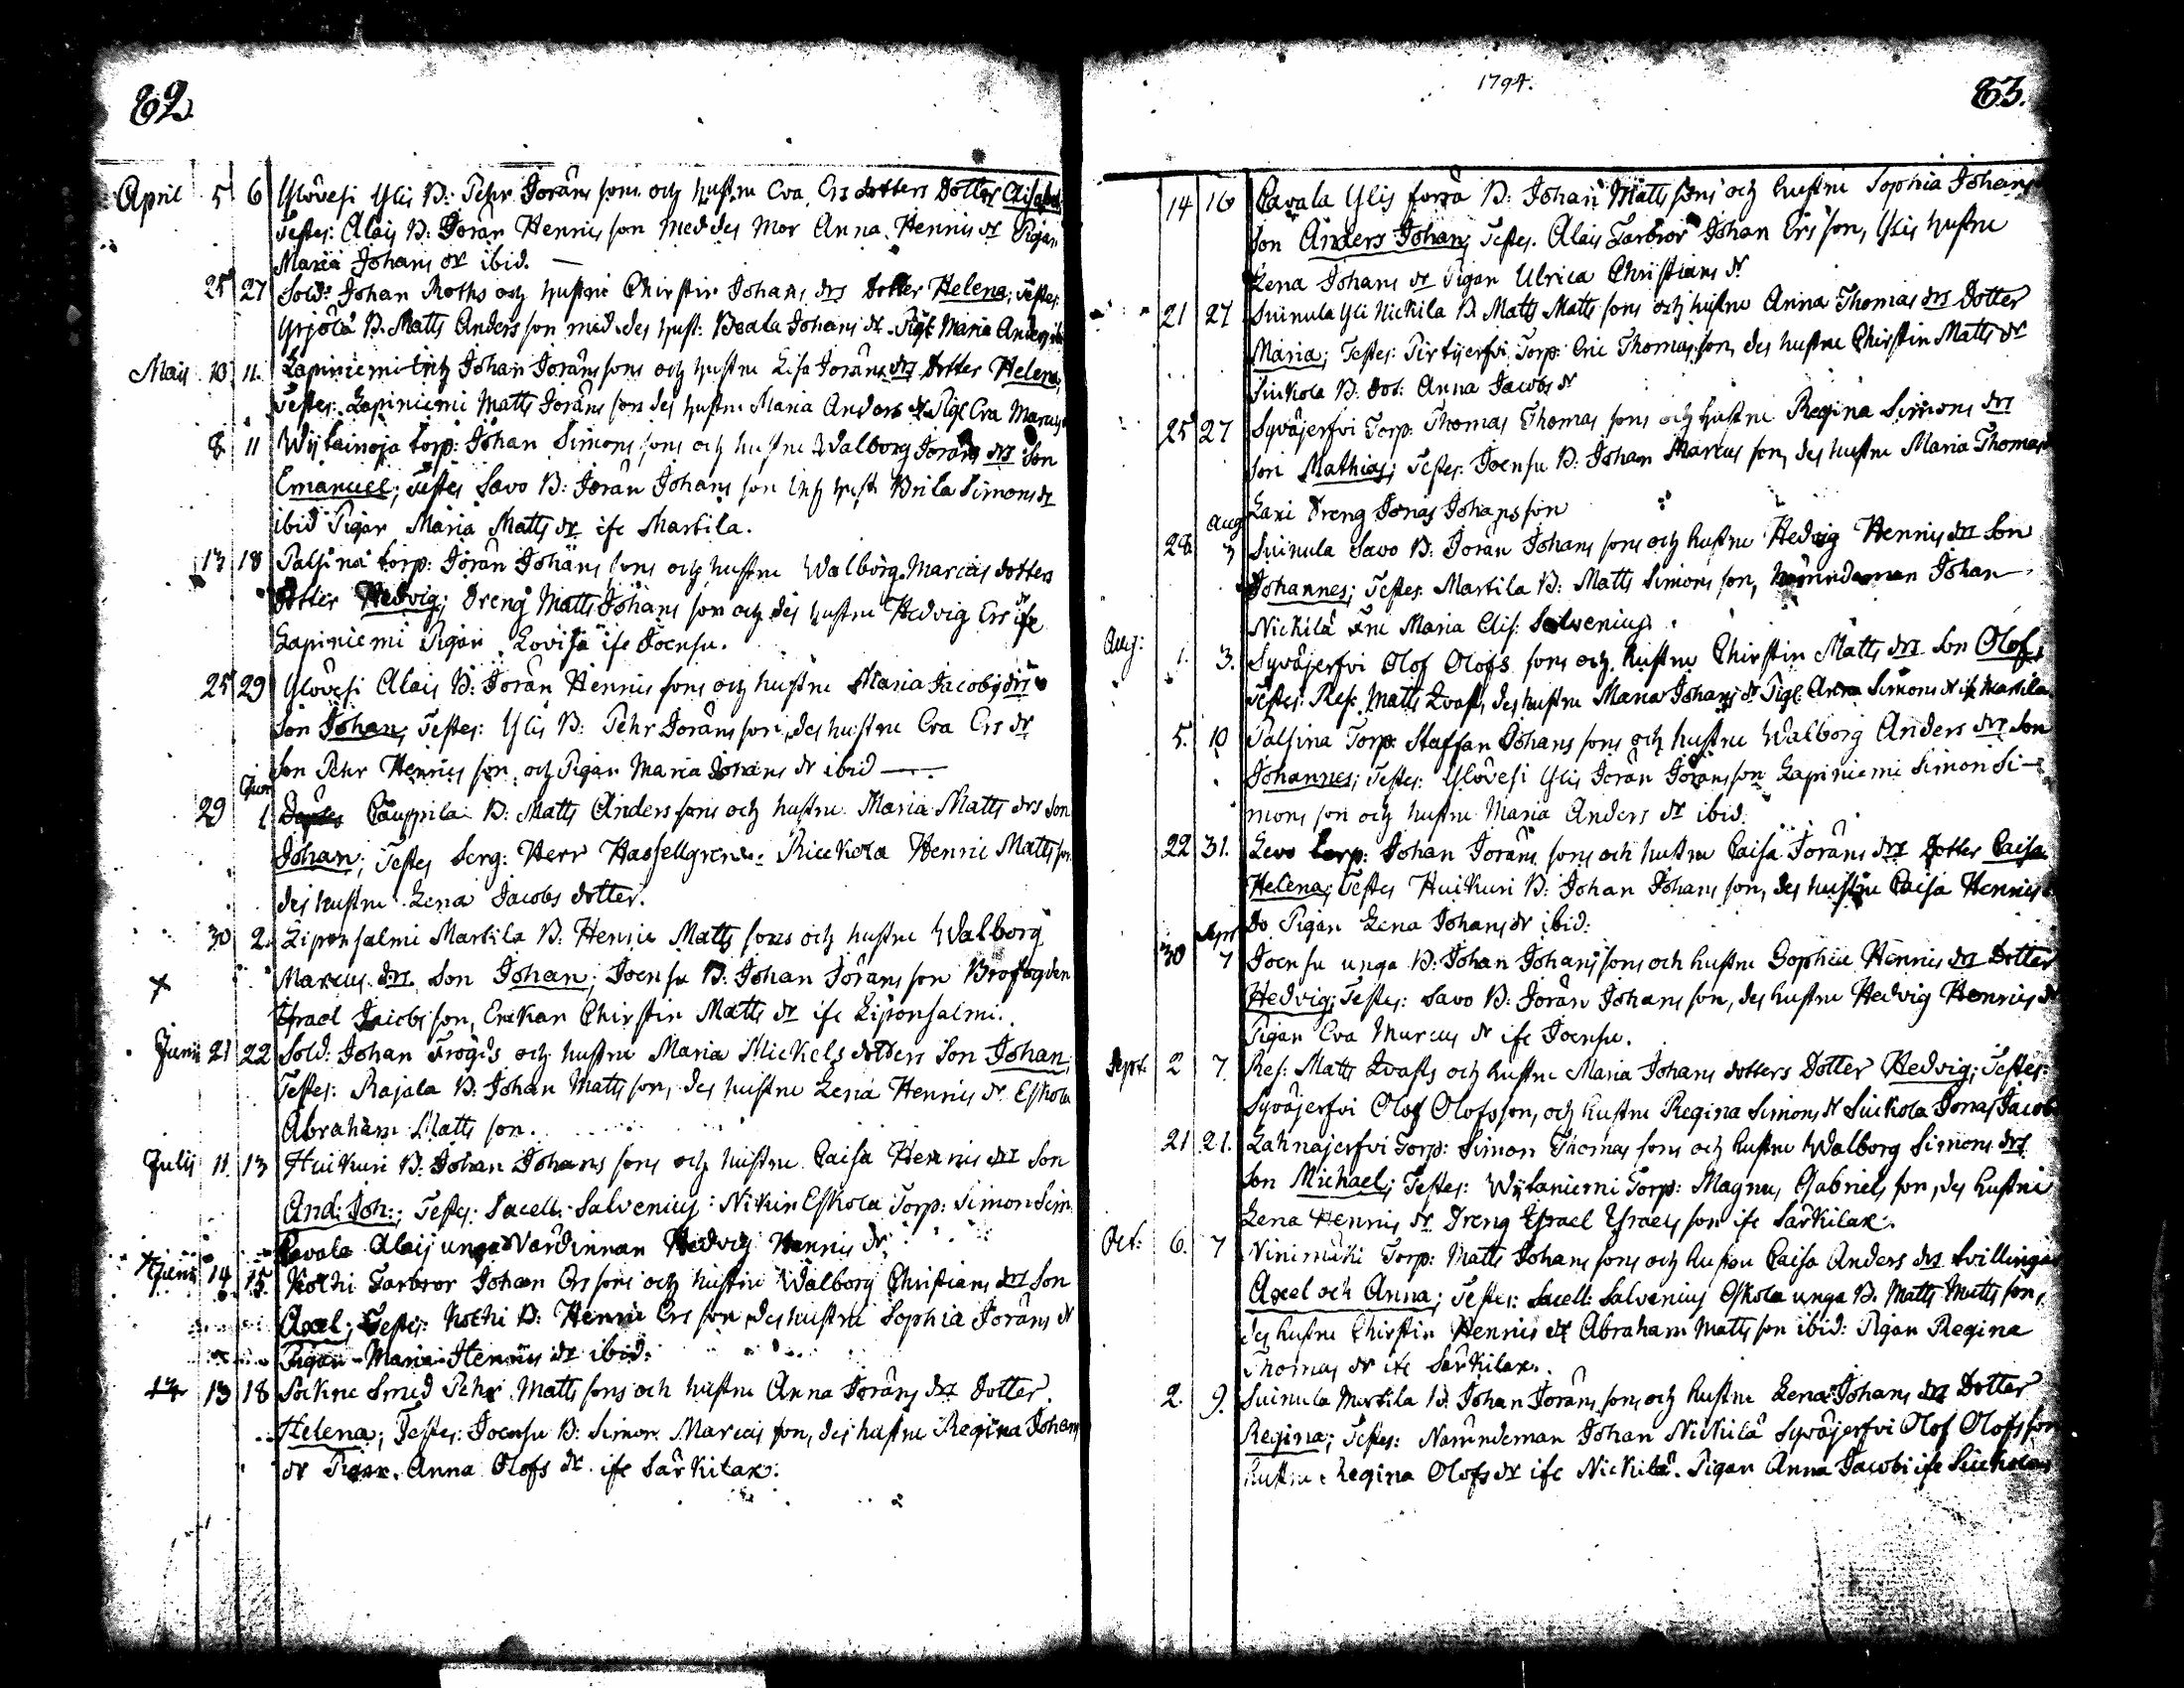 82.
April 5 6 Ylövesi Ylis B: Pehr Jöräns sons och hustru Eva Ers dotters Dotter Elisabet
Testes: Alais B: Jöran Henrics son med des Mor Anna Henrics dr Pigan
Maria Johans dr ibid.
25 27 Sold: Johan Roths och hustru Chirstin Johans drs Dotter Helena; Testes:
Yrjölä B. Matts Anders son med des hust: Beata Johans dr. Pig: Maria Anders
Maij 10 11. Lapiniemi Inh Johan Jöräns sons och hustru Lisa Jöräns drs Dotter Helena,
Testes: Lapiniemi Matts Jöräns son des hustru Maria Anders dr Pig: Eva Marcus
8 11 Wytainoja torp: Johan Simons sons och hustru Walborg Jöräns drs Son
Emanuel; Testes Savo B: Jöran Johans son Inh hust: Brita Simons dr
ibid Pigan Maria Matts dr ife Martila.
13 18 Palsina torp: Jöran Johans sons och hustru Walborg Marcus dotters
Dotter Hedvig; Dreng Matts Johans son och des hustru Hedvig Ers dr ife
Lapiniemi Pigan Lovisa ife Joensu.
25 29 Ylövesi Alais B: Jöran Henrics sons och hustru Maria Jacobs drs
Son Johan, Testes: Ylis B: Pehr Jöräns son, des hustru Eva Ers dr
Son Pehr Henrics son, och Pigan Maria Johans dr ibid
29 Jun 1 Cauppila B: Matts Anders sons och hustru Maria Matts drs Son
Johan; Testes Serg: Herr Hassellgren Rieckola Henric Matts son
des hustru Lena Jacobs dotter.
30 2. Liponsalmi Martila B: Henric Matts sons och hustru Walborg
x Marcus drs Son Johan; Joensu B: Johan Jöräns son Brofogden
Israel Jacobs son, Enckan Chirstin Matts dr ife Liponsalmi.
Junii 21 22 Sold: Johan Frögds och hustru Maria Mickels dotters Son Johan,
Testes: Rajala B: Johan Matts son, des hustru Lena Henrics dr Eskola
Abraham Matts son.
Julij 11. 13 Huikuri B: Johan Johans sons och hustru Caisa Henrics drs Son
And: Joh:; Testes: Sacell: Salvenius: Nikun Eskola Torp: Simon Sim
Cavala Alais unga Värdinnan Hedvig Henrics dr
+ Junii 14 15. Kothi Farbror Johan Ers sons och hustru Walborg Christians drs Son
Axel; Testes: Kothi B: Henric Ers son, des hustru Sophia Jöräns dr
Pigan Maria Henrics dr ibid.
13 18 Sockne Smed Pehr Matts sons och hustru Anna Jöräns drs Dotter
Helena; Testes: Joensu B: Simon Marcus son, des hustru Regina Johans
dr Pigan Anna Olofs dr ife Särkilax.
1794.
83.
14 16 Cavala Ylis förra B: Johan Matts sons och hustru Sophia Johans
Son Anders Johan; Testes. Alais Farbror Johan Ers son, Ylis hustru
Lena Johans dr Pigan Ulrica Christians dr
21 27 Suinula Yli Nickila B. Matts Matts sons och hustru Anna Thomas drs Dotter
Maria; Testes: Pirttijerfvi Torp: Eric Thomas son, des hustru Chirstin Matts dr
Siukola B. Dot: Anna Jacobs dr
25 27 Syväjerfvi Torp: Thomas Thomas sons och hustru Regina Simons drs
Son Mathias; Testes: Joensu B: Johan Marcus son, des hustru Maria Thomas
Lari Dreng Jonas Johans son
28 Aug 3 Suinula Savo B: Jöran Johans sons och hustru Hedvig Henrics drs Son
Johannes; Testes: Martila B: Matts Simons son, Nämndeman Johan
Nickilä Fru Maria Elis: Salvenius.
Aug: 1. 3. Syväjerfvi Olof Olofs sons och hustru Chirstin Matts drs Son Olof;
Testes: Ref: Matts Qvast, des hustru Maria Johans dr Pig: Anna Simons dr ife Martila
5. 10 Palsina Torp: Staffan Johans sons och hustru Walborg Anders drs Son
Johannes; Testes: Ylövesi Ylis Jöran Jöransson Lapiniemi Simon Si-
mons son och hustru Maria Anders dr ibid.
22 31. Levo Torp: Johan Jöräns sons och hustru Caisa Jöräns drs Dotter Caisa
Helena; Testes Huikuri B: Johan Johans son, des hustru Caisa Henrics
Do Pigan Lena Johans dr ibid:
30 7 Joensu unga B: Johan Johans sons och hustru Sophia Henrics drs Dotter
Hedvig; Testes: Savo B: Jöran Johans son, des hustru Hedvig Henrics dr
Pigan Eva Marcus dr ife Joensu.
Sept: 2 7. Ref: Matts Qvasts och hustru Maria Johans dotters Dotter Hedvig; Testes:
Syväjerfvi Olof Olofsson, och hustru Regina Simons dr Siukola Jonas Jacobs
21 21. Lahnajerfvi Torp: Simon Thomas sons och hustru Walborg Simons drs
Son Michael; Testes: Wytaniemi Torp: Magnus Gabriels son, des hustru
Lena Henrics dr Dreng Israel Israels son ife Särkilax.
Oct: 6. 7 Ninimäki Torp: Matts Johans sons och hustru Caisa Anders drs tvillingar
Axel och Anna; Testes: Sacell: Salvenius Eskola unga B: Matts Matts son,
des hustru Chirstin Henrics dr Abraham Matts son ibid: Pigan Regina
Thomas dr ife Särkilax.
2. 9. Suinula Martila B. Johan Jöräns sons och hustru Lena Johans drs Dotter
Regina; Testes: Nämndeman Johan Nickilä Syväjerfvi Olof Olofs son
hustru Regina Olofs dr ife Nickilä. Pigan Anna Jacobs ife Siukola